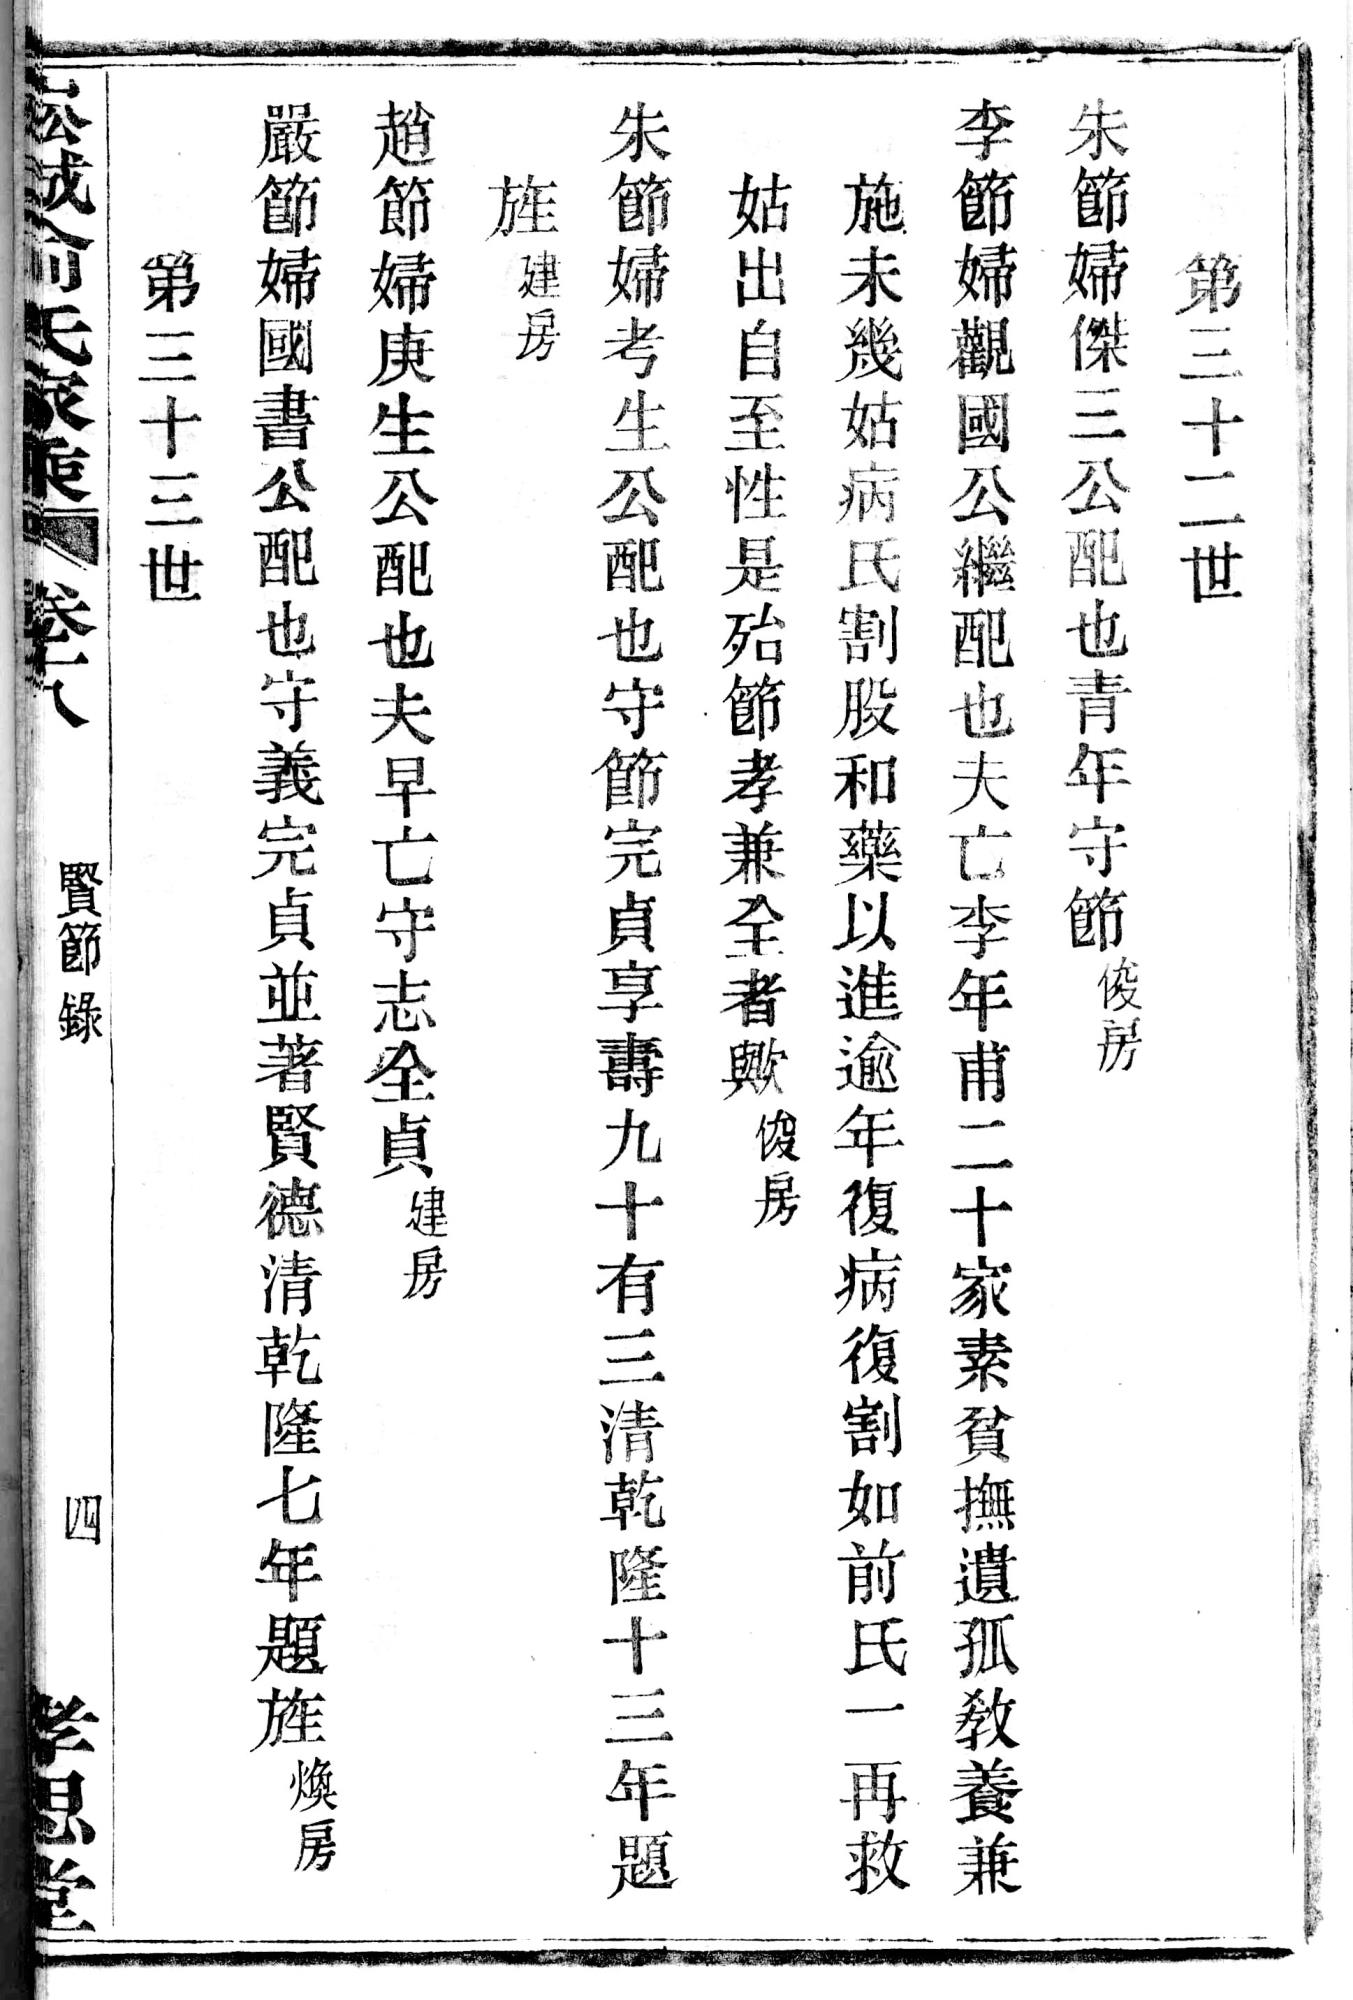 第三十二世
朱節婦傑三公配也青年守節俊房
李節婦觀國公繼配也夫亡李年甫二十家素貧撫遺孤教養兼
施未幾姑病氏割股和藥以進逾年復病復割如前氏一再救
姑出自至性是殆節孝兼全者歟俊房
朱節婦考生公配也守節完貞享壽九十有三清乾隆十三年題
旌建房
趙節婦庚生公配也夫早亡守志全貞建房
嚴節婦國書公配也守義完貞並著賢德清乾隆七年題旌煥房
第三十三世
俞氏家乘 卷十八 賢節錄 四 孝思堂